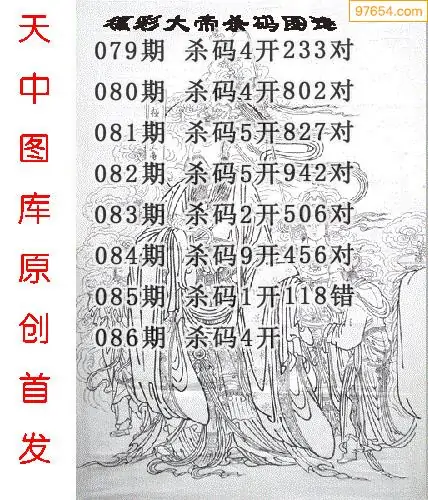 97654.com
福彩大帝杀码图迷
079期 杀码4开233对
080期 杀码4开802对
081期 杀码5开827对
082期 杀码5开942对
083期 杀码2开506对
084期 杀码9开456对
085期 杀码1开118错
086期 杀码4开
天中图库原创首发